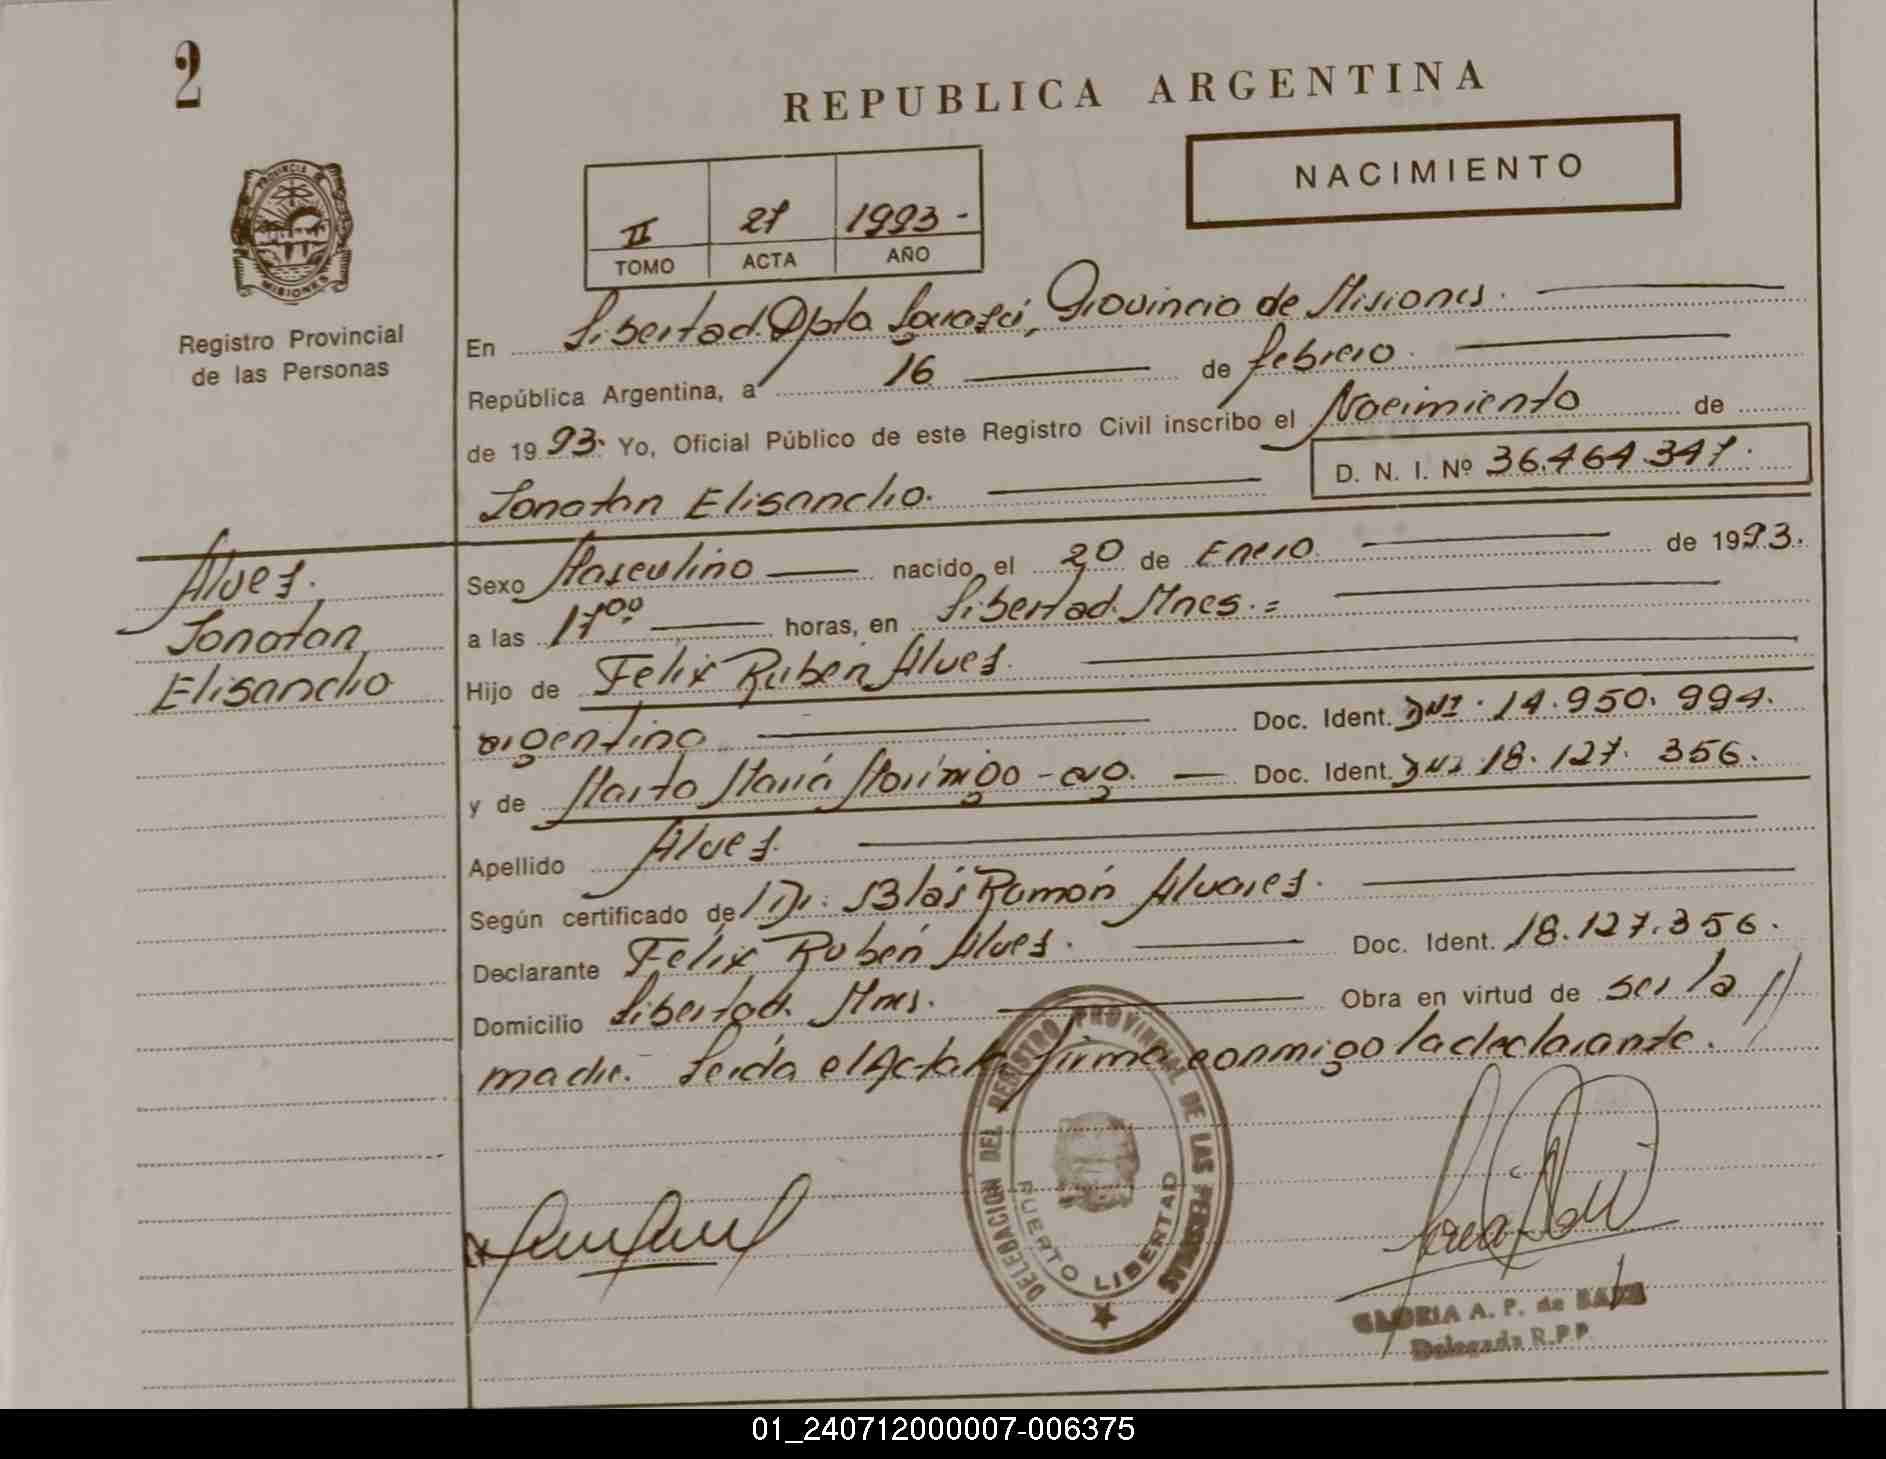 2
REPUBLICA ARGENTINA
NACIMIENTO
II 27 1993 -
TOMO ACTA AÑO
PROVINCIA DE MISIONES
Registro Provincial
de las Personas
En Libertad. Dpto Iguazú, Provincia de Misiones.
República Argentina, a 16 de febrero.
de 1993. Yo, Oficial Público de este Registro Civil inscribo el Nacimiento de
D. N. I. Nº 36.464.347.
Jonatan Elisandro.
Alves.
Jonatan
Elisandro
Sexo Masculino nacido el 20 de Enero. de 1993.
a las 17⁰⁰ horas, en Libertad. Mnes. =
Hijo de Felix Ruben Alves.
argentino Doc. Ident. DNI. 14.950.994.
y de Marta María Morínigo - arg. Doc. Ident. DNI 18.127.356.
Apellido Alves.
Según certificado de Dr. Blás Ramón Alvares.
Declarante Felix Ruben Alves. Doc. Ident. 18.127.356.
Domicilio Libertad. Mnes. Obra en virtud de ser la //
madre. Leida el Acta la firma conmigo la declarante.
DELEGACION DEL REGISTRO PROVINCIAL DE LAS PERSONAS
PUERTO LIBERTAD
GLORIA A. P. de
Delegada R.P.P.
01_240712000007-006375